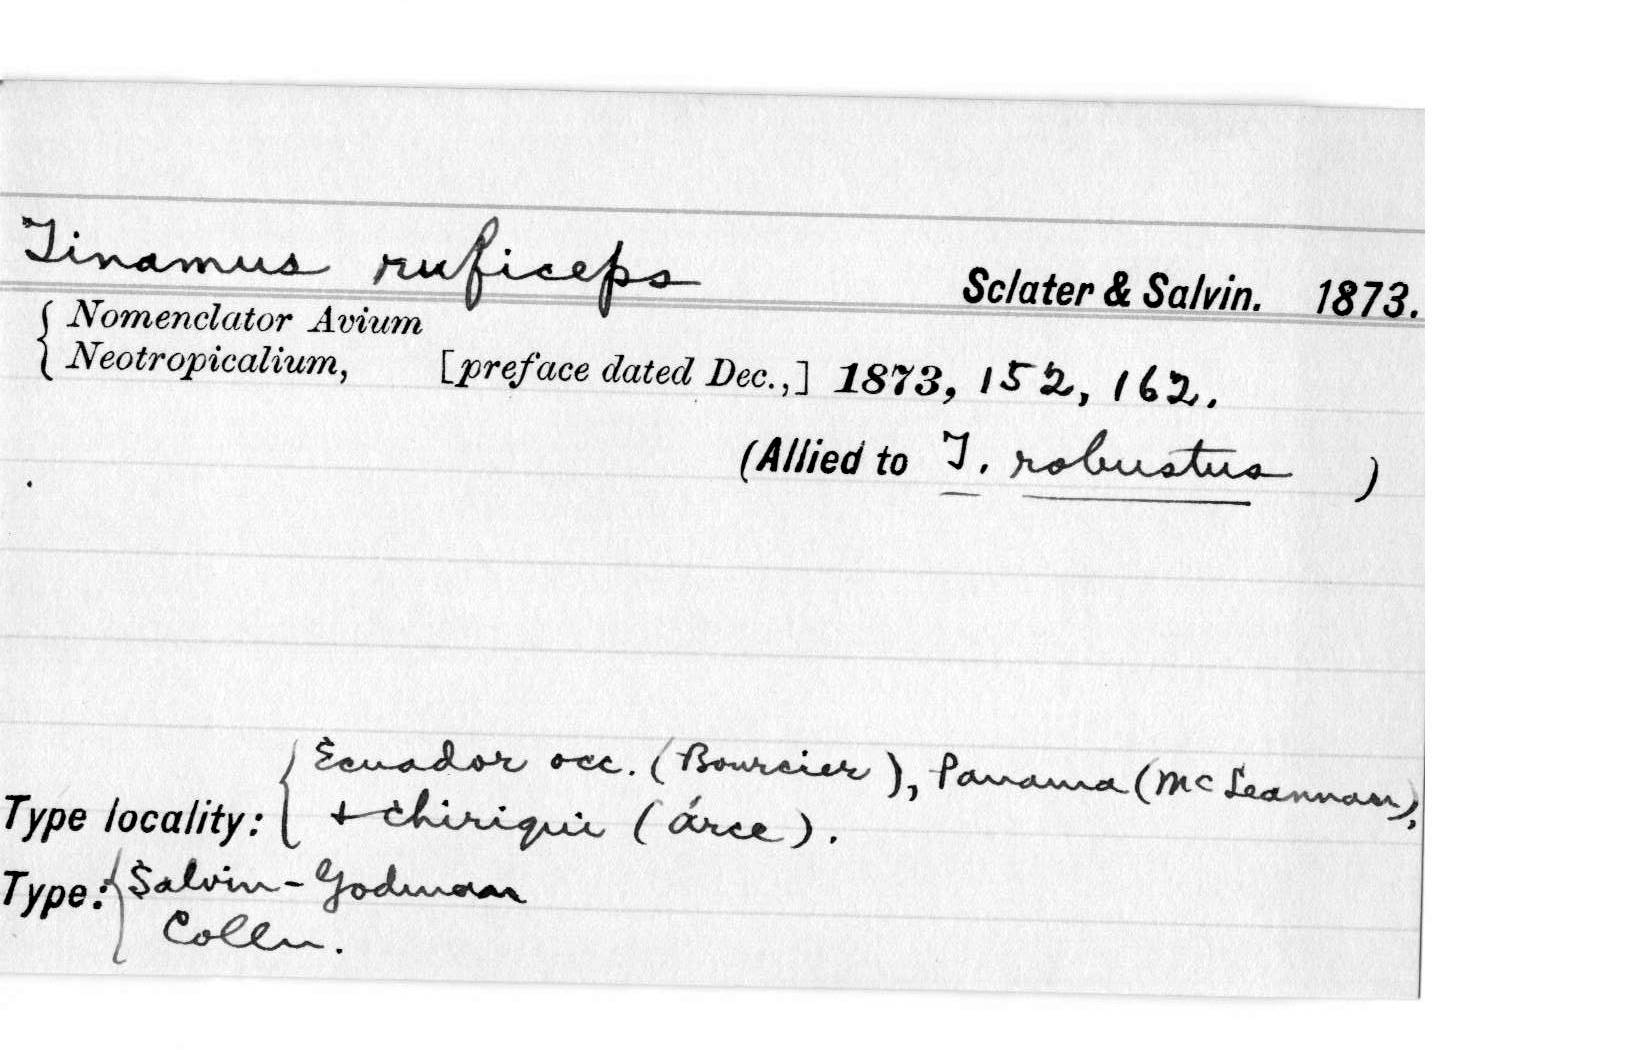 Tinamus ruficeps Sclater & Salvin. 1873.
{ Nomenclator Avium
Neotropicalium, [preface dated Dec.,] 1873, 152, 162.
(Allied to T. robustus )
Type locality: { Ecuador occ. (Bourcier), Panama (McLeannan),
+ Chiriqui (Arce).
Type: { Salvin-Godman
Colln.